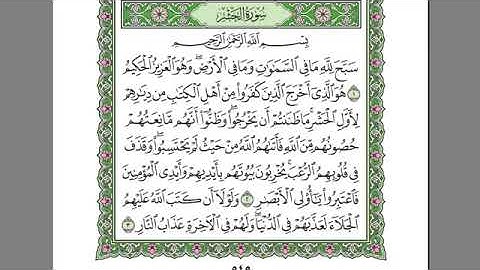 سُورَةُ الحَشْرِ
بِسْمِ اللَّهِ الرَّحْمَٰنِ الرَّحِيمِ
سَبَّحَ لِلَّهِ مَا فِي السَّمَٰوَٰتِ وَمَا فِي الْأَرْضِ ۖ وَهُوَ الْعَزِيزُ الْحَكِيمُ
١ هُوَ الَّذِي أَخْرَجَ الَّذِينَ كَفَرُوا مِنْ أَهْلِ الْكِتَٰبِ مِن دِيَٰرِهِمْ
لِأَوَّلِ الْحَشْرِ ۚ مَا ظَنَنتُمْ أَن يَخْرُجُوا ۖ وَظَنُّوا أَنَّهُم مَّانِعَتُهُمْ
حُصُونُهُم مِّنَ اللَّهِ فَأَتَىٰهُمُ اللَّهُ مِنْ حَيْثُ لَمْ يَحْتَسِبُوا ۖ وَقَذَفَ
فِي قُلُوبِهِمُ الرُّعْبَ ۚ يُخْرِبُونَ بُيُوتَهُم بِأَيْدِيهِمْ وَأَيْدِي الْمُؤْمِنِينَ
فَاعْتَبِرُوا يَٰٓأُولِي الْأَبْصَٰرِ ٢ وَلَوْلَا أَن كَتَبَ اللَّهُ عَلَيْهِمُ
الْجَلَاءَ لَعَذَّبَهُمْ فِي الدُّنْيَا ۖ وَلَهُمْ فِي الْآخِرَةِ عَذَابُ النَّارِ ٣
٥٤٥